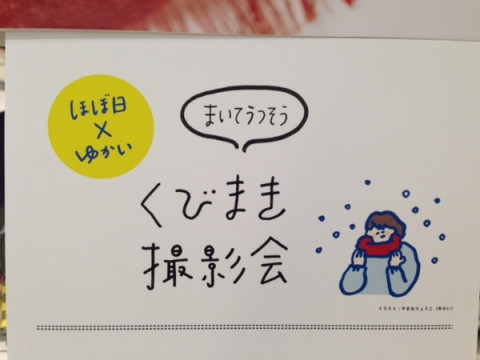 ほぼ日
×
ゆかい
まいてうつそう
くびまき
撮影会
イラスト・やまねりょうこ（ゆかい）